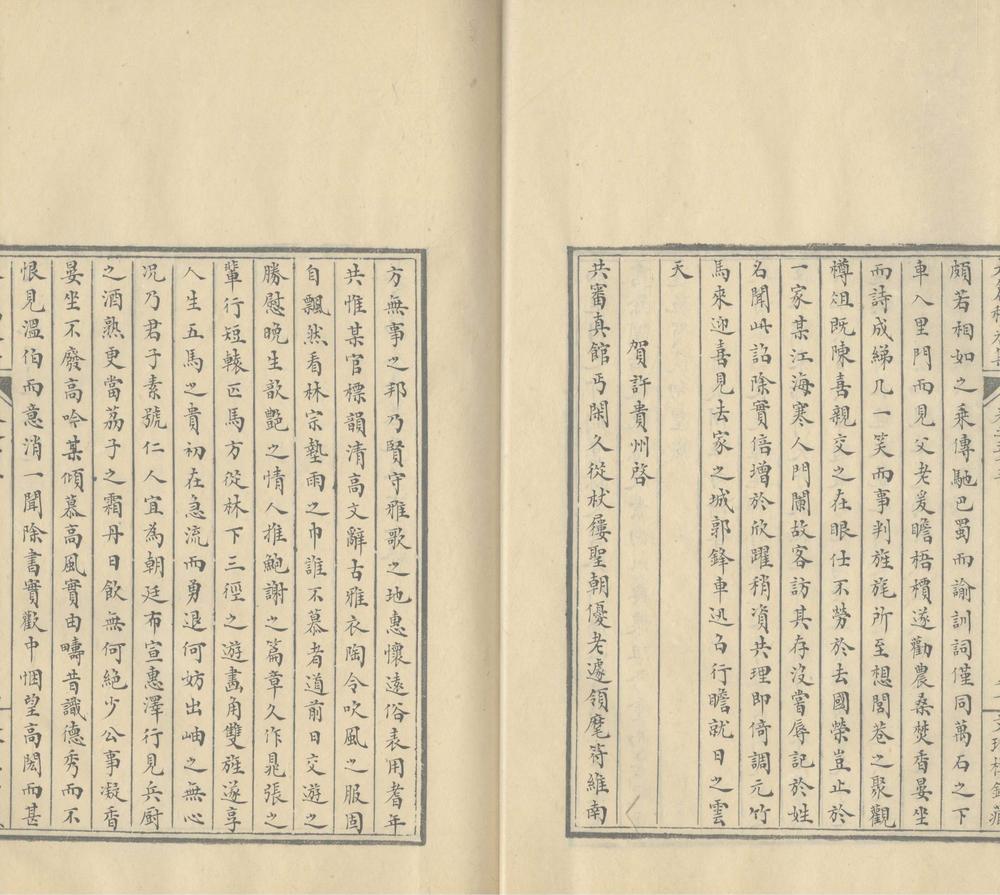 頗若相如之乘傳馳巴蜀而諭訓詞僅同萬石之下
車入里門而見父老爰瞻梧檟遂勸農桑焚香晏坐
而詩成綈几一笑而事判旌旄所至想閭巷之聚觀
樽俎既陳喜親交之在眼仕不勞於去國榮豈止於
一家某江海寒人門闌故客訪其存沒嘗辱記於姓
名聞此詔除實倍增於欣躍稍資共理即倚調元竹
馬來迎喜見去家之城郭鋒車迅召行瞻就日之雲
天
賀許貴州啓
共審真館丐閑久從杖屨聖朝優老遽領麾符維南
方無事之邦乃賢守雅歌之地惠懷遠俗表用耆年
共惟某官標韻清高文辭古雅衣陶令吹風之服固
自飄然看林宗墊雨之巾誰不慕者道前日交遊之
勝慰晚生歆艷之情人推鮑謝之篇章久作晁張之
輩行短轅匹馬方從林下三徑之遊畫角雙旌遂享
人生五馬之貴初在急流而勇退何妨出岫之無心
况乃君子素號仁人宜為朝廷布宣惠澤行見兵厨
之酒熟更當荔子之霜丹日飲無何絕少公事凝香
晏坐不廢高吟某傾慕高風實由疇昔識德秀而不
恨見溫伯而意消一聞除書實歡中悃望高閎而甚